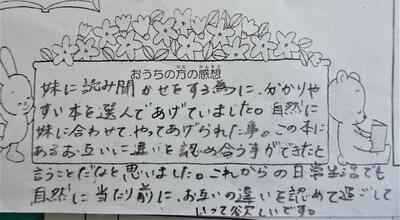 おうちの方の感想
かた
かんそう
妹に読み聞かせをする為に、分かりや
すい本を選んであげていました。自然に
妹に合わせて、やってあげられた事。この本に
あるお互いに違いを認め合う事ができたと
言うことだなと思いました。これからの日常生活でも
自然に当たり前に、お互いの違いを認めて過ごして
いって欲しいです。